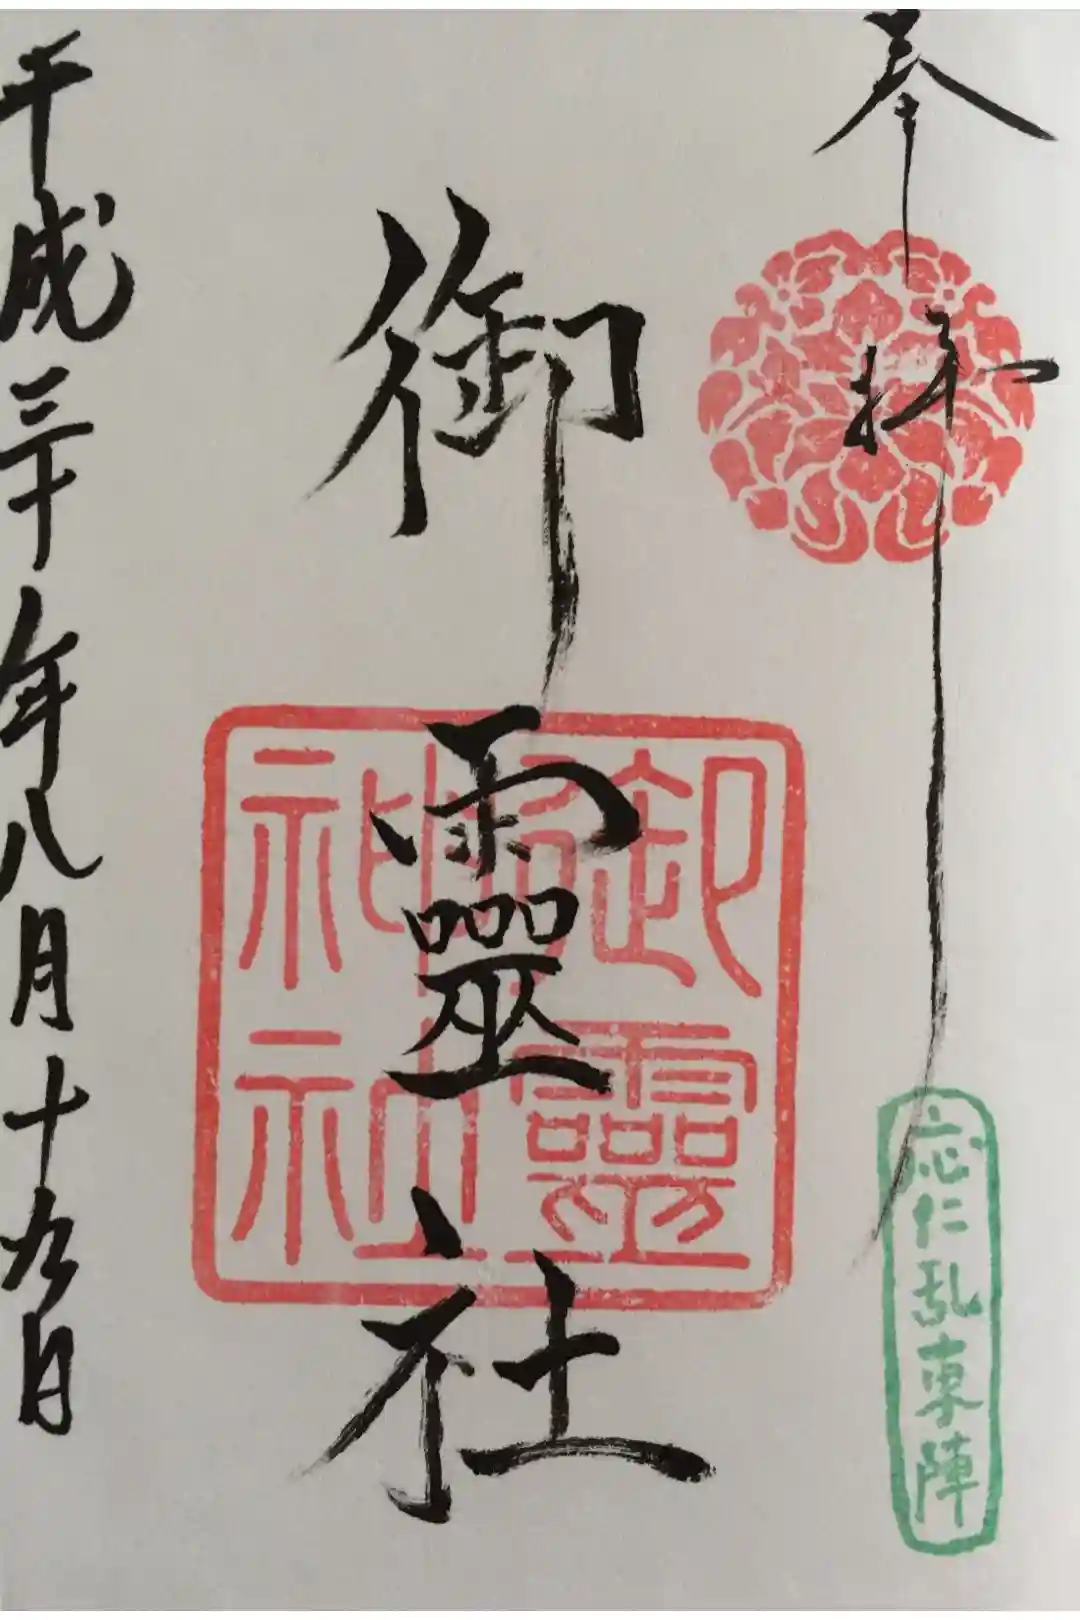 奉拝
応仁乱東陣
御靈社
御靈
神社
平成三十年八月十九日